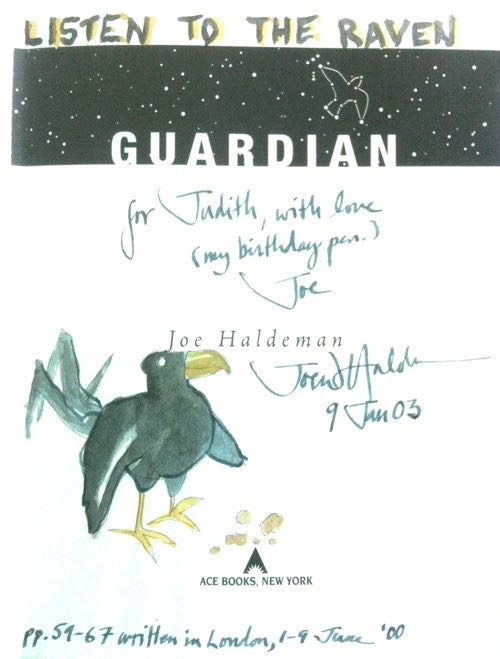 LISTEN TO THE RAVEN
GUARDIAN
for Judith, with love
(my birthday pen.)
Joe
Joe Haldeman
Joe Haldeman
9 Jan 03
ACE BOOKS, NEW YORK
pp. 59-67 written in London, 1-9 June '00